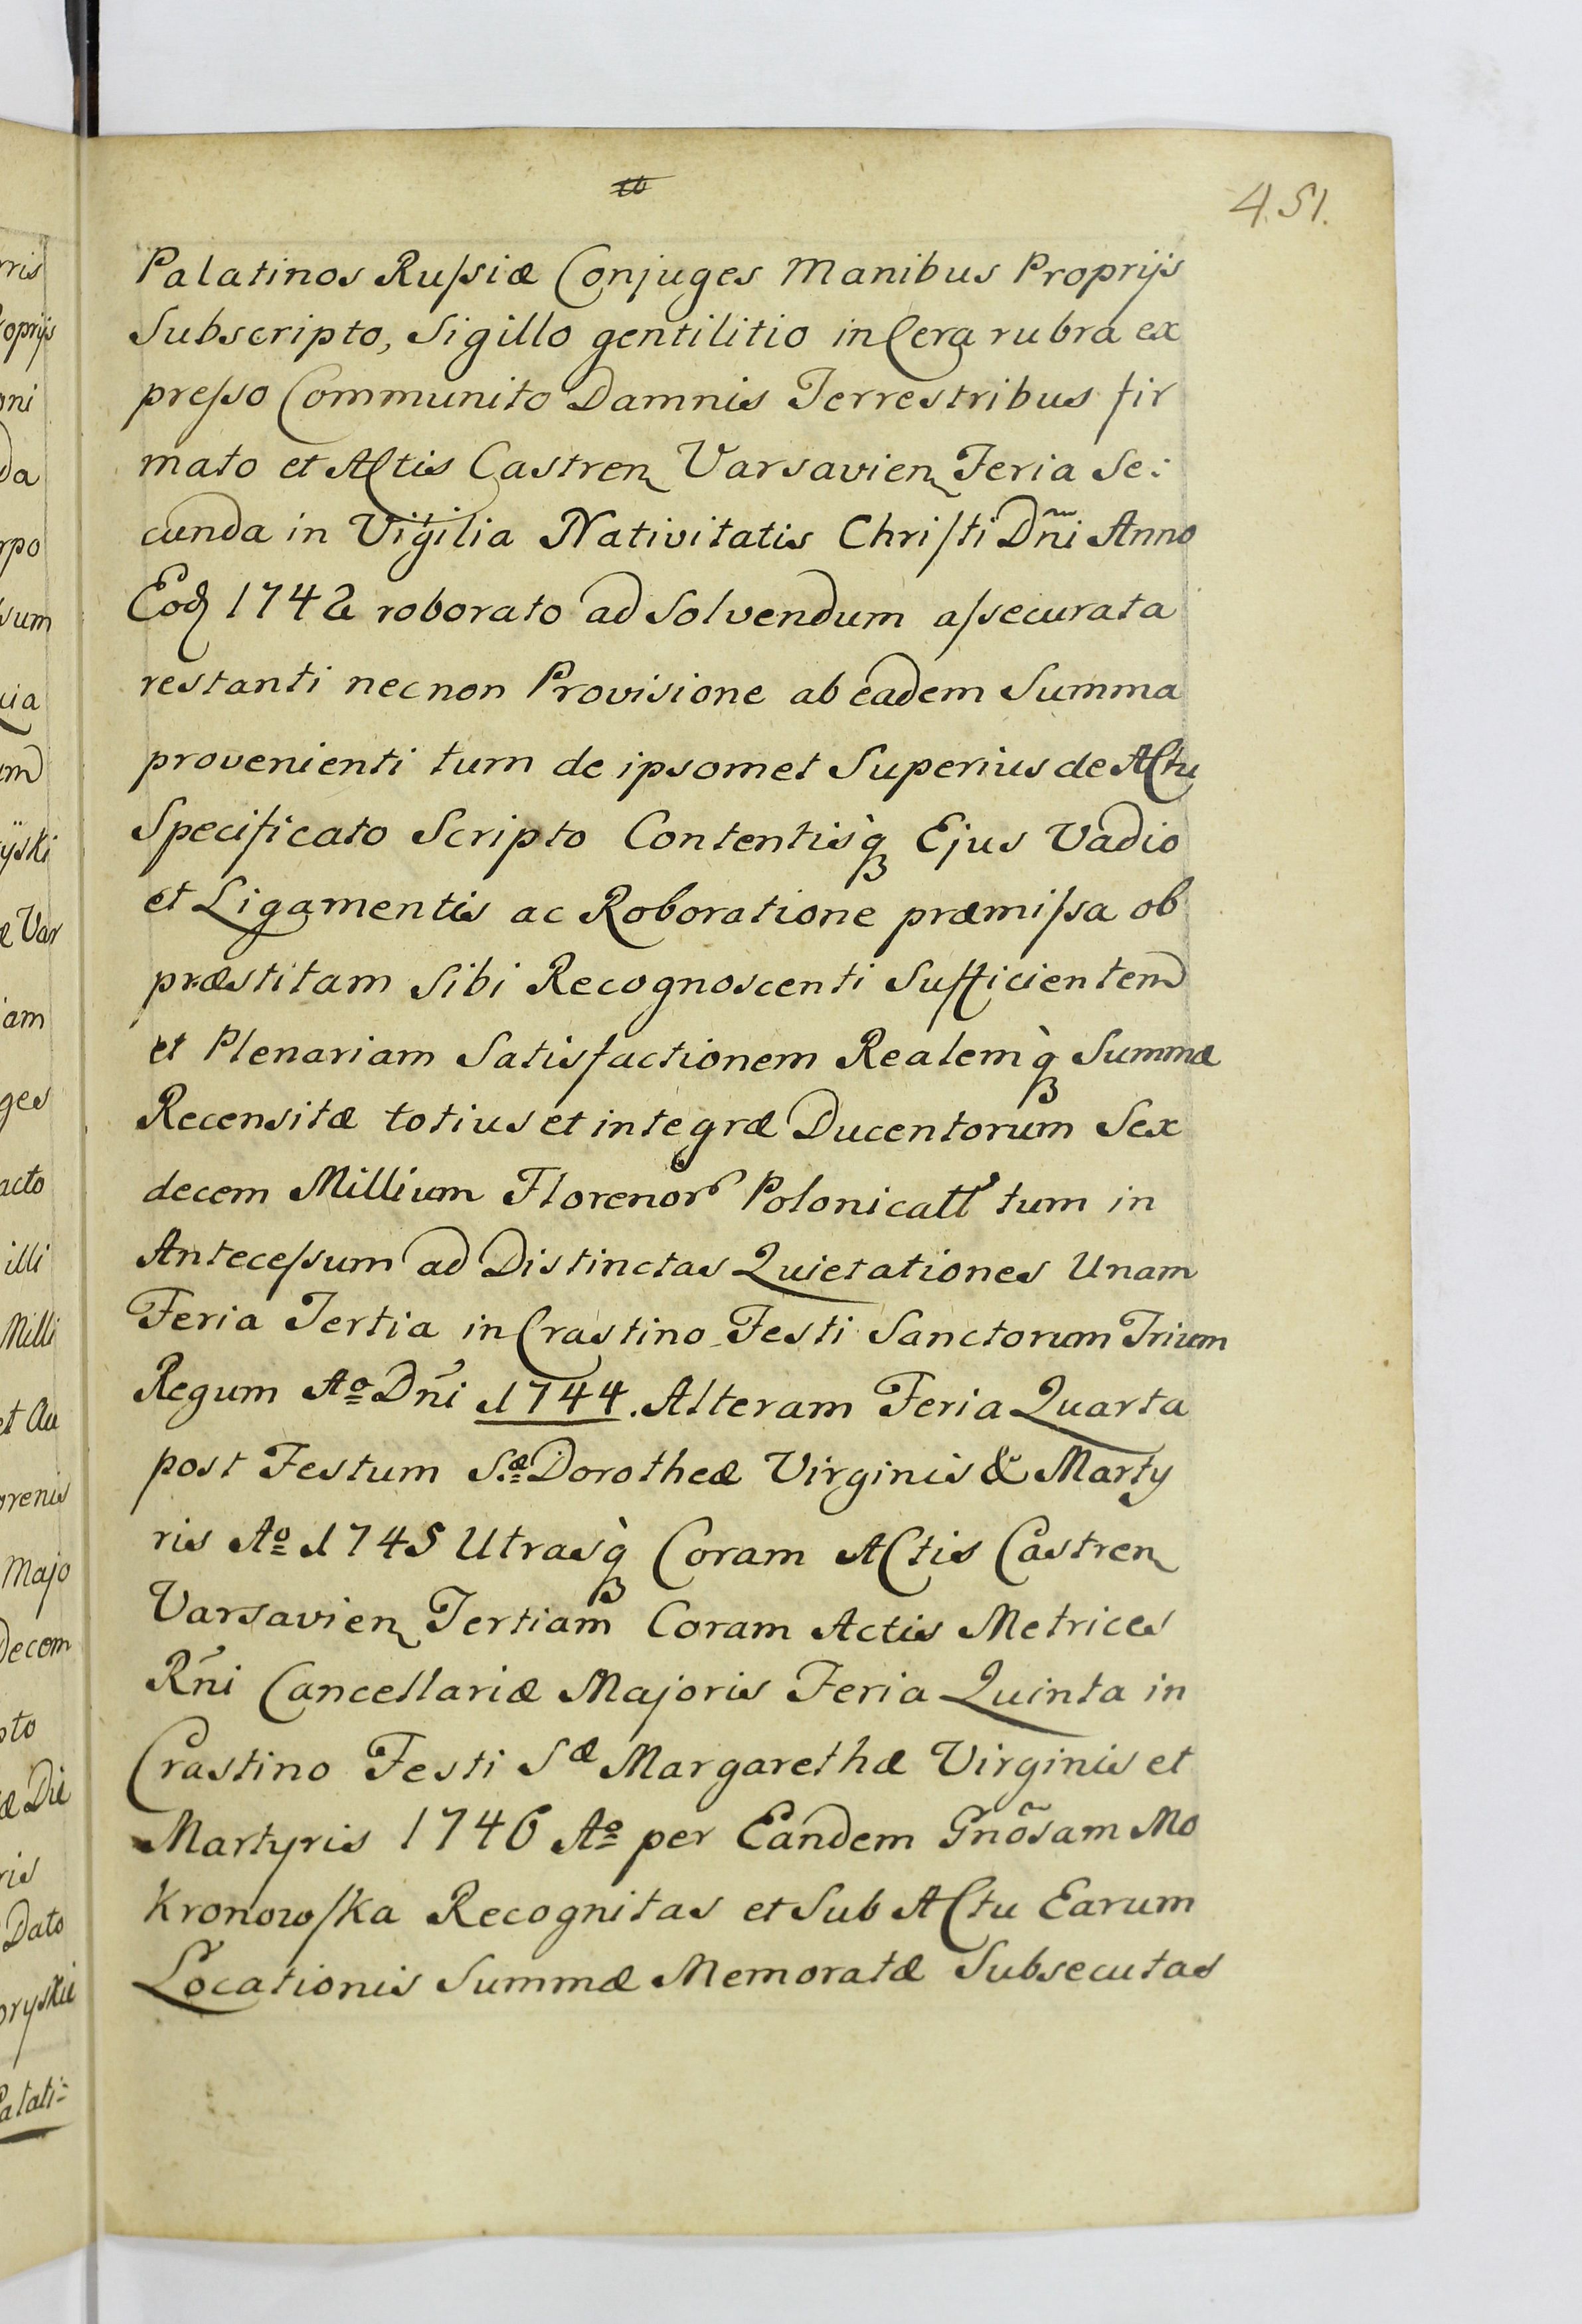 4.51.
Palatinos Ruſsiæ Conjuges Manibus Proprijs
Subscripto, Sigillo gentilitio in Cera rubra ex
preſso Communito Damnis Terrestribus fir
mato et Actis Castren Varsavien Feria Se:
cunda in Vigilia Nativitatis Chriſti Dñi Anno
Eod 1742 roborato ad Solvendum aſsecurata
restanti necnon Provisione ab eadem Summa
provenienti tum de ipsomet Superius de Actu
Specificato Scripto Contentisq̀ Ejus Vadio
et Ligamentis ac Roboratione præmiſsa ob
præstitam Sibi Recognoscenti Sufficientem
et Plenariam Satisfactionem Realemq̀ Summæ
Recensitæ totius et integræ Ducentorum Sex
decem Millium Florenor Polonicall tum in
Anteceſsum ad Distinctas Quietationes Unam
Feria Tertia in Crastino Festi Sanctorum Trium
Regum Aº Dñi 1744. Alteram Feria Quarta
post Festum S.æ Dorotheæ Virginis & Marty
ris Aº 1745 Utrasq̀ Coram Actis Castren
Varsavien Tertiam Coram Actis Metrices
Rñi Cancellariæ Majoris Feria Quinta in
Crastino Festi Sæ Margarethæ Virginis et
Martyris 1746 Aº per Eandem Gnõsam Mo
kronowſka Recognitas et Sub Actu Earum
Locationis Summæ Memoratæ Subsecutas
ris
oprijs
oni
da
rpo
sum
cia
um
ÿski
æ Var
iam
ges
acto
illi
Milli
et Au
orenis
Majo
Decem
pto
æ Die
ris
Dato
oryskii
Palati=